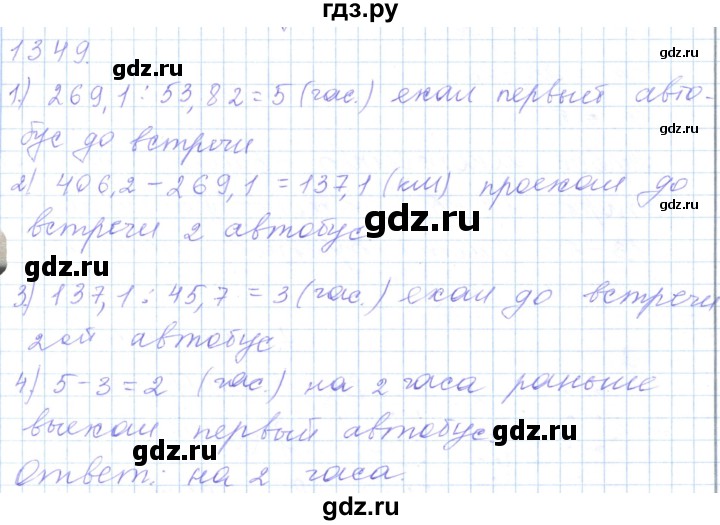 гдз.ру
1349.
1) 269,1 : 53,82 = 5 (час.) ехал первый авто-
бус до встречи
2) 406,2 - 269,1 = 137,1 (км) проехал до
встречи 2 автобус
3) 137,1 : 45,7 = 3 (час.) ехал до встречи
2ой автобус
4) 5 - 3 = 2 (час.) на 2 часа раньше
выехал первый автобус
Ответ: на 2 часа.
gdz.ru
gdz.ru
gdz.ru
gdz.ru
gdz.ru
gdz.ru
gdz.ru
gdz.ru
gdz.ru
gdz.ru
gdz.ru
gdz.ru